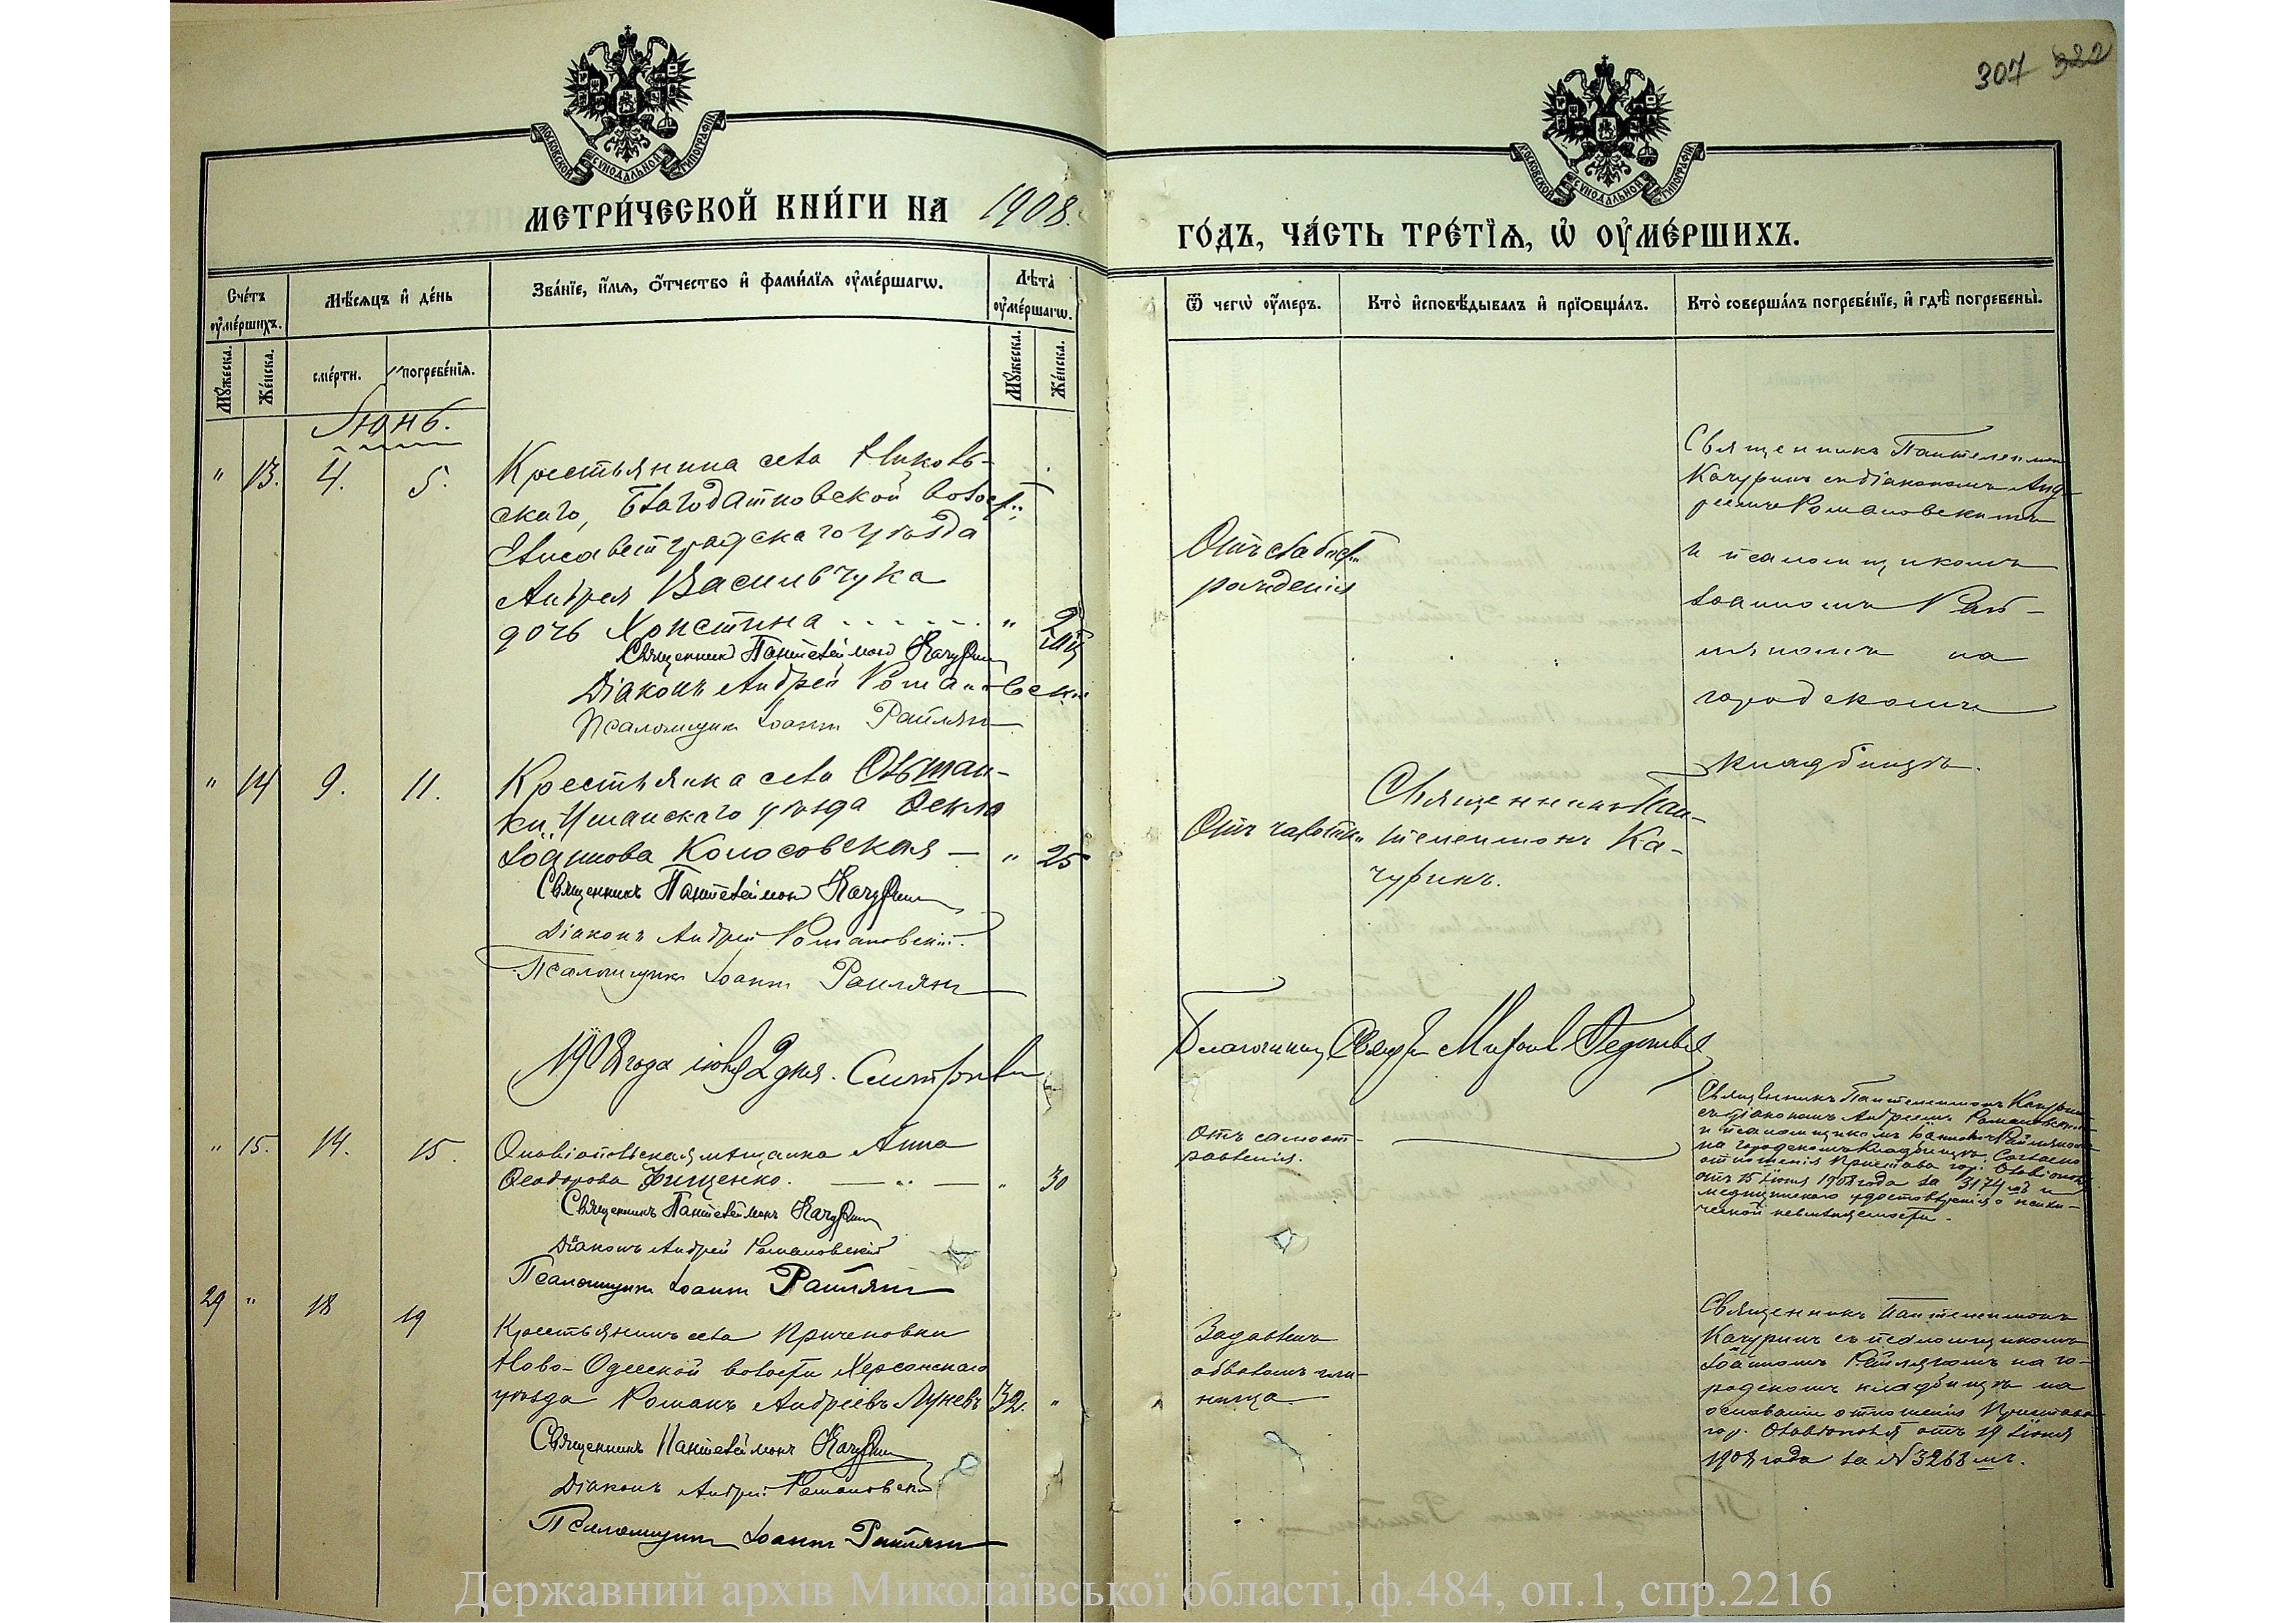 307 322
МОСКОВСКОЙ СѴНОДАЛЬНОЙ ТИПОГРАФІИ
МОСКОВСКОЙ СѴНОДАЛЬНОЙ ТИПОГРАФІИ
МЕТРИ́ЧЕСКОЙ КНИ́ГИ НА 1908.
ГО́ДЪ, ЧА́СТЬ ТРЕ́ТІѦ, Ѡ҆ ОУ҆МЕ́РШИХЪ.
Сче́тъ оу҆ме́ршихъ.
Мѣ́сяцъ и҆ де́нь
Зва́нїе, и҆́мѧ, ѻ҆́тчество и҆ фами́лїѧ оу҆ме́ршагѡ.
Лѣта̀ оу҆ме́ршагѡ.
Мꙋ́жеска.
Же́нска.
сме́рти.
погребе́нїѧ.
Мꙋ́жеска.
Же́нска.
Ѿ чегѡ̀ оу҆́меръ.
Кто̀ и҆сповѣ́дывалъ и҆ прїѻбща́лъ.
Кто̀ соверша́лъ погребе́нїе, и҆ гдѣ̀ погребены̀.
Іюнь.
" 13. 4. 5.
Крестьянина села
скаго, Благодатновской волост.
Елисаветградскаго уѣзда
Андрея Васильчука
дочь Христина " 2
Священникъ Пантелеймонъ Качуринъ
Діаконъ Андрей Романовскій
Псаломщикъ Іоаннъ Райлянъ
Отъ слабост.
рожденія
Священникъ Пантелеимонъ
Качуринъ съ діакономъ Анд-
реемъ Романовскимъ
и псаломщикомъ
Іоанномъ Рай-
ляномъ на
городскомъ
кладбищѣ.
" 14 9. 11.
Крестьянка села Ольшан-
ки, Уманскаго уѣзда Ѳекла
Іоаннова Колосовская — " 25
Священникъ Пантелеймонъ Качуринъ
Діаконъ Андрей Романовскій.
Псаломщикъ Іоаннъ Райлянъ
Отъ чахотки
Священникъ Пан-
телеимонъ Ка-
чуринъ.
1908 года 2 дня. Смотрѣлъ
Благочинный Свящ.
" 15. 14. 15.
Очавіопольская мѣщанка Анна
Ѳеодорова Фищенко. — " — " 30
Священникъ Пантелеймонъ Качуринъ
Діаконъ Андрей Романовскій
Псаломщикъ Іоаннъ Райлянъ
отъ самоот-
равленія.
Священникъ Пантелеимонъ Качуринъ
съ діакономъ Андреемъ Романовскимъ
и псаломщикомъ Іоанномъ Райляномъ
на городскомъ кладбищѣ, согласно
отношенія Пристава гор. Ольвіополя
отъ 15 Іюня 1908 года за 3174 мъ и
медицинскаго удостовѣренія о психи-
ческой невмѣняемости.
29 " 18 19
Крестьянинъ села
Ново-Одесской волости Херсонскаго
уѣзда Романъ Андреевъ Луневъ 32. "
Священникъ Пантелеймонъ Качуринъ
Діаконъ Андрей Романовскій
Псаломщикъ Іоаннъ Райлянъ
Задавленъ
обваломъ гли-
нища.
Священникъ Пантелеимонъ
Качуринъ съ псаломщикомъ
Іоанномъ Райляномъ на го-
родскомъ кладбищѣ на
основаніи отношенія Пристава
гор. Ольвіополя отъ 19 Іюня
1908 года за № 3268 мъ.
Державний архів Миколаївської області, ф.484, оп.1, спр.2216